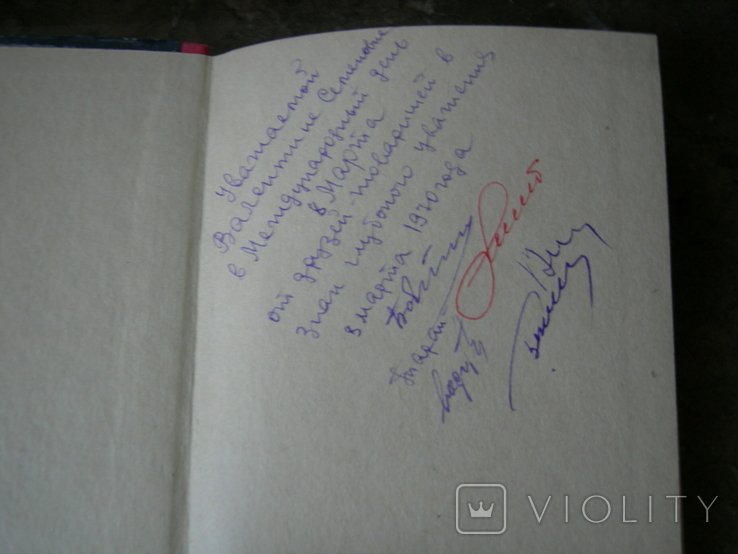 Уважаемой
Валентине Семеновне
в Международный день
8 Марта
от друзей-товарищей в
знак глубокого уважения
8 марта 1970 года
VIOLITY